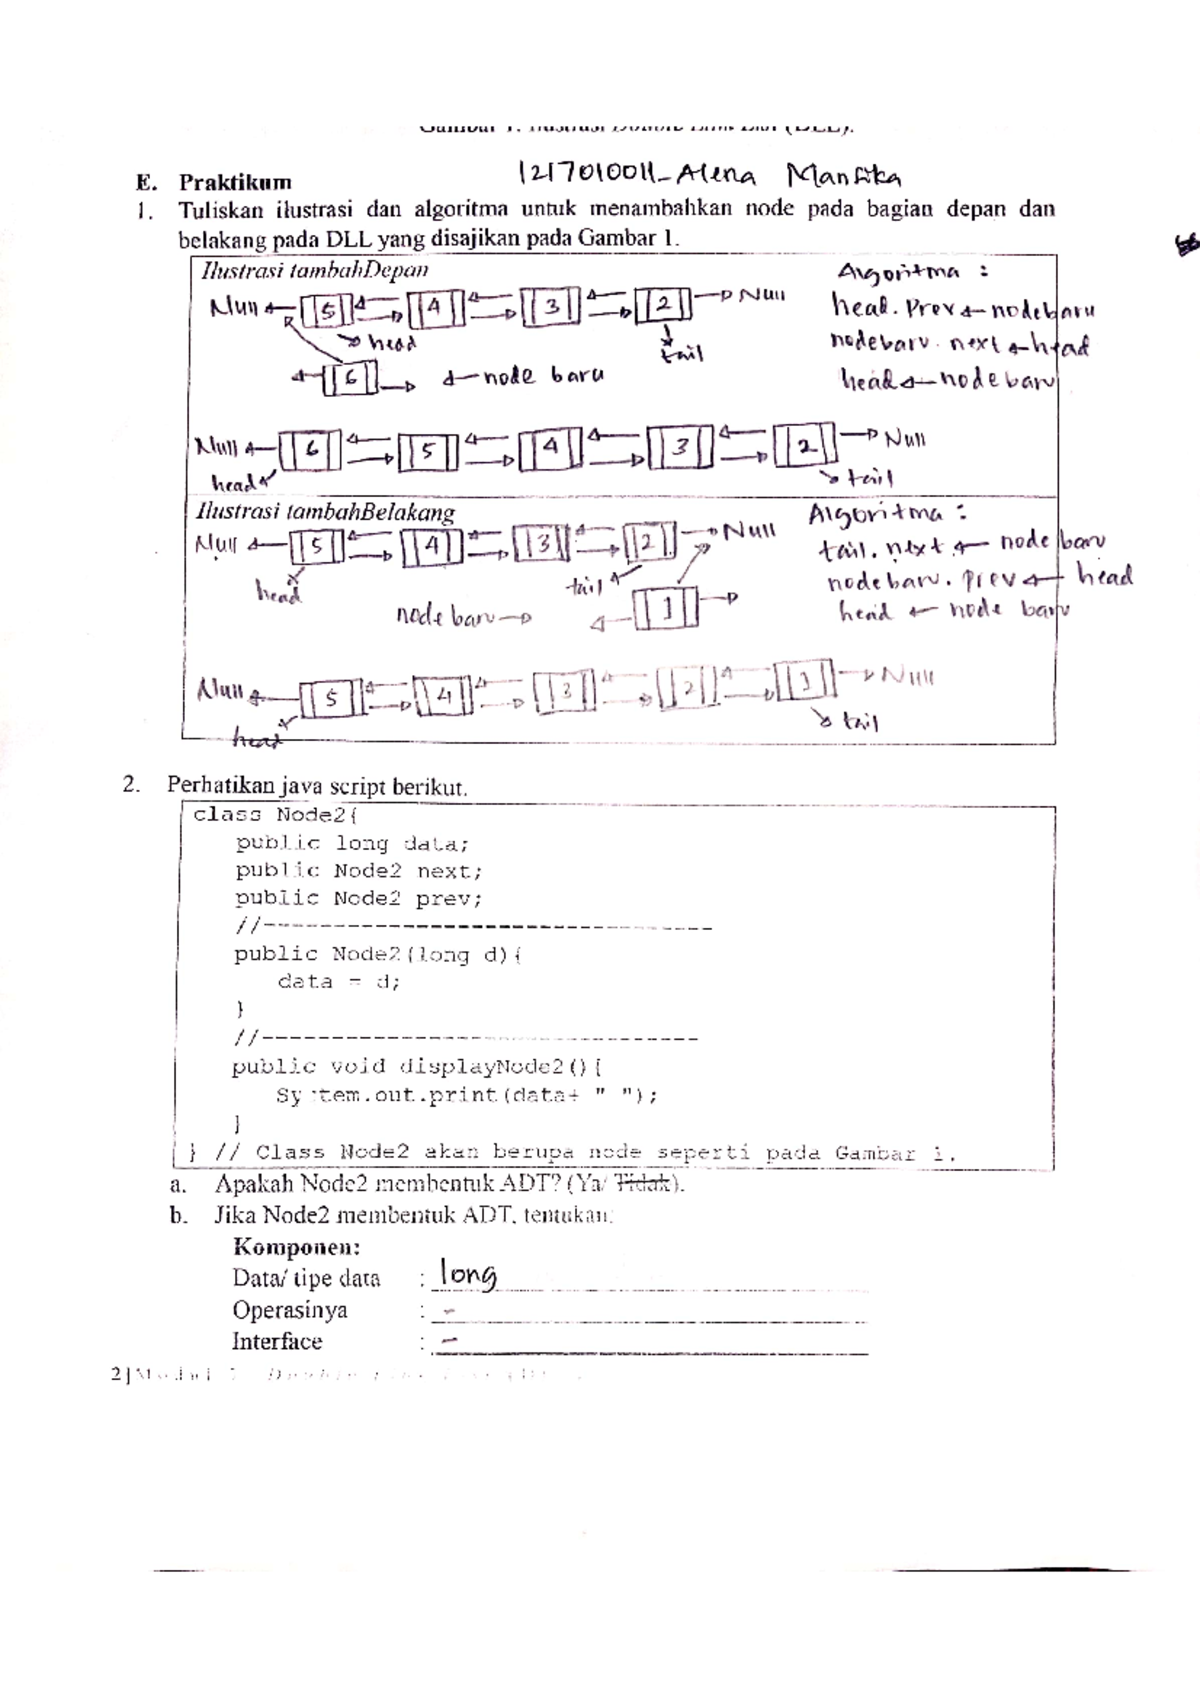 E. Praktikum
1217010011_Alena Manfika
1. Tuliskan ilustrasi dan algoritma untuk menambahkan node pada bagian depan dan
belakang pada DLL yang disajikan pada Gambar 1.
Ilustrasi tambahDepan
Null 5 4 3 2 Null
head
tail
6 node baru
Algoritma :
head. Prev ← nodebaru
nodebaru. next ← head
head ← nodebaru
Null 6 5 4 3 2 Null
head
tail
Ilustrasi tambahBelakang
Null 5 4 3 2 Null
head
tail
node baru 1
Algoritma :
tail. next ← node baru
nodebaru. prev ← head
head ← node baru
Null 5 4 3 2 1 Null
head
tail
2. Perhatikan java script berikut.
class Node2{
public long data;
public Node2 next;
public Node2 prev;
//--------------------------------
public Node2(long d){
data = d;
}
//-------------------------------
public void displayNode2(){
System.out.print(data+ " ");
}
} // Class Node2 akan berupa node seperti pada Gambar 1.
a. Apakah Node2 membentuk ADT? (Ya/ Tidak).
b. Jika Node2 membentuk ADT, tentukan:
Komponen:
Data/ tipe data : long
Operasinya : -
Interface : -
2|